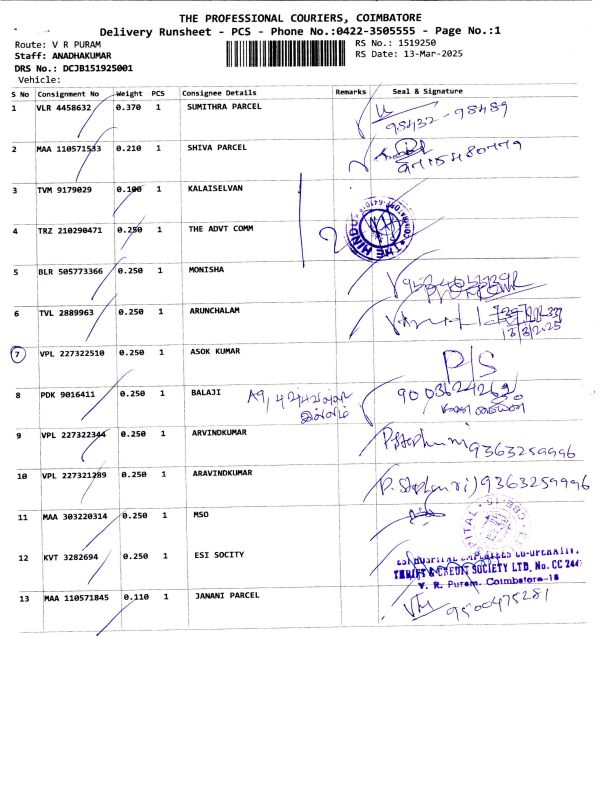 THE PROFESSIONAL COURIERS, COIMBATORE
Delivery Runsheet - PCS - Phone No.:0422-3505555 - Page No.:1
Route: V R PURAM
RS No.: 1519250
Staff: ANADHAKUMAR
RS Date: 13-Mar-2025
DRS No.: DCJB151925001
Vehicle:
S No Consignment No Weight PCS Consignee Details Remarks Seal & Signature
1 VLR 4458632 0.370 1 SUMITHRA PARCEL 98432-98489
2 MAA 110571533 0.210 1 SHIVA PARCEL 9715480779
3 TVM 9179029 0.100 1 KALAISELVAN
4 TRZ 210290471 0.250 1 THE ADVT COMM 2 THE HINDU
5 BLR 505773366 0.250 1 MONISHA
6 TVL 2889963 0.250 1 ARUNCHALAM 13/3/2025
7 VPL 227322510 0.250 1 ASOK KUMAR P/S
8 PDK 9016411 0.250 1 BALAJI A9,
9 VPL 227322344 0.250 1 ARVINDKUMAR 9363259996
10 VPL 227321289 0.250 1 ARAVINDKUMAR 9363259996
11 MAA 303220314 0.250 1 MSO
12 KVT 3282694 0.250 1 ESI SOCITY
ESI HOSPITAL EMPLOYEES CO-OPERATIVE
THRIFT & CREDIT SOCIETY LTD, No. CC 244
V. R. Puram, Coimbatore-15
13 MAA 110571845 0.110 1 JANANI PARCEL 9500475281